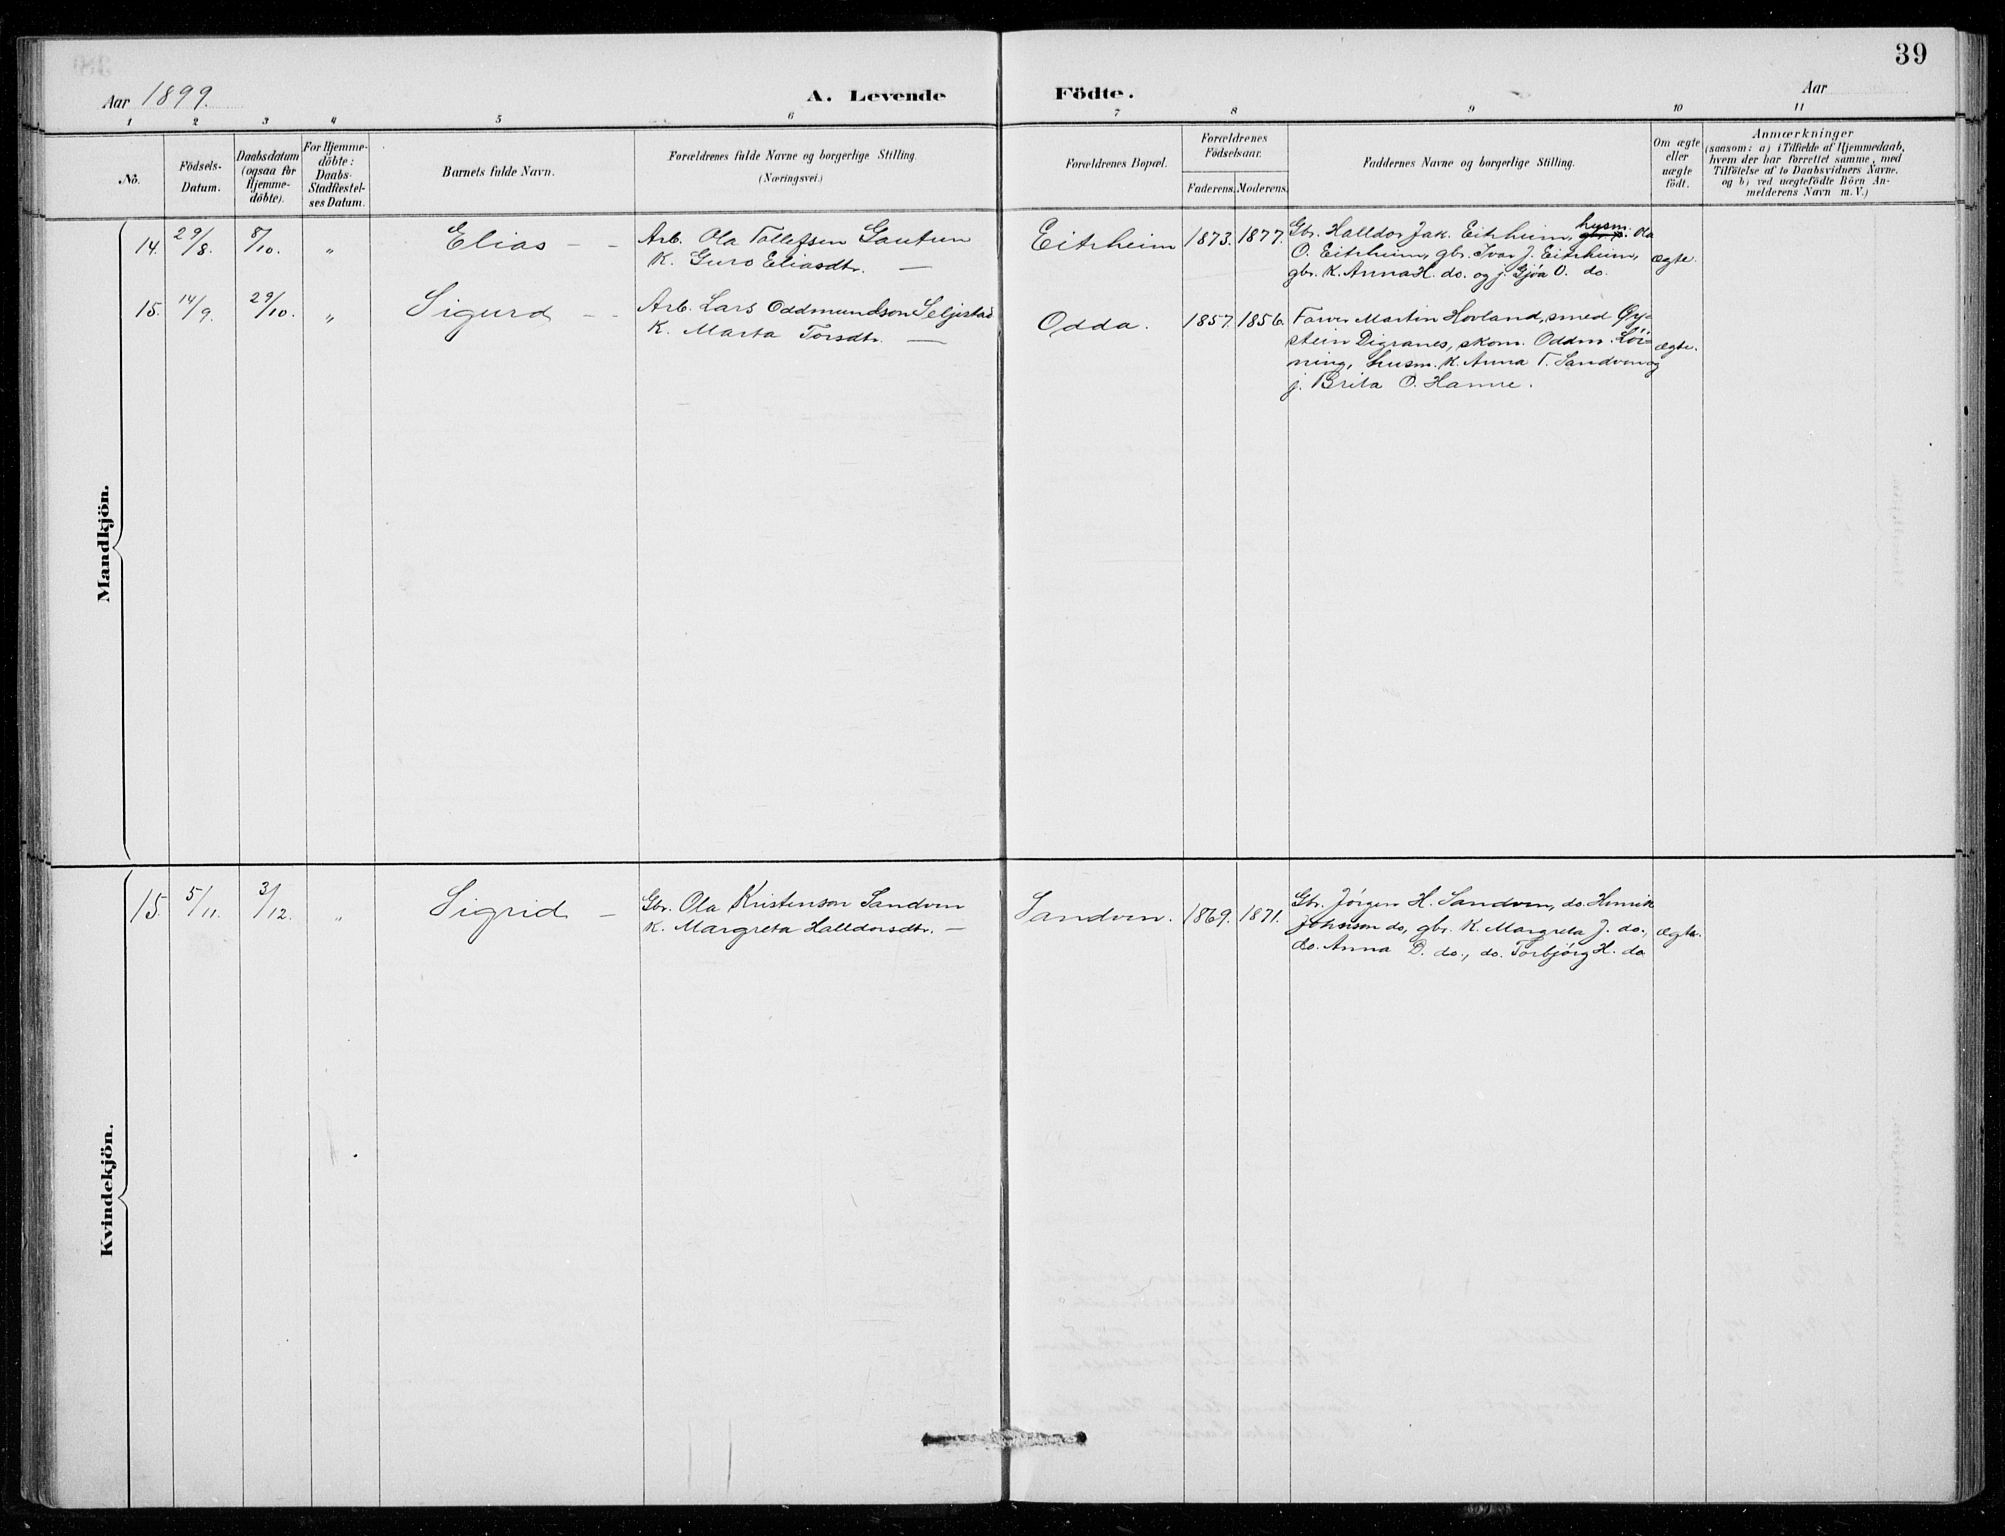 39
Aar 1899. A. Levende Födte. Aar
1 2 3 4 5 6 7 8 9 10 11
No.
Födsels-
Datum.
Daabsdatum
(ogsaa for
Hjemme-
döbte).
For Hjemme-
döbte:
Daabs-
Stadfæstel-
ses Datum.
Barnets fulde Navn.
Forældrenes fulde Navne og borgerlige Stilling.
(Næringsvei.)
Forældrenes Bopæl.
Forældrenes
Födselsaar.
Faderens. Moderens.
Faddernes Navne og borgerlige Stilling.
Om ægte
eller
uægte
födt.
Anmærkninger
(saasom: a) i Tilfælde af Hjemmedaab,
hvem der har forrettet samme, med
Tilföielse af to Daabsvidners Navne.
og b) ved uægtefödte Börn An-
melderens Navn m. V.)
Mandkjön.
14. 29/8. 8/10. " Elias - -
Arb. Ola Tollefsen Gautun
K. Guro Eliasdtr. —
Eitrheim 1873. 1877.
Gbr. Halldor Jak. Eitrheim, husm. Ola
O. Eitrheim, gbr. Ivar J. Eitrheim,
gbr. K. Anna H. do. og j. Gjøa O. do.
ægte.
15. 14/9. 29/10. " Sigurd - -
Arb. Lars Oddmundson Seljestad
K. Marta Torsdtr. —
Odda. 1857. 1856.
Farver Martin Hovland, smed Øy-
stein Digranes, skom. Oddm. Løi-
ning, husm. K. Anna T. Sandven og
j. Brita O. Hamre.
ægte.
Kvindekjön.
15. 5/11. 3/12. " Sigrid —
Gbr. Ola Kristenson Sandven
K. Margreta Halldorsdtr. —
Sandven. 1869. 1871.
Gbr. Jørgen H. Sandven, do. Henrik
Johnson do, gbr. K. Margreta J. do.,
do. Anna D. do., do. Torbjørg H. do
ægte.